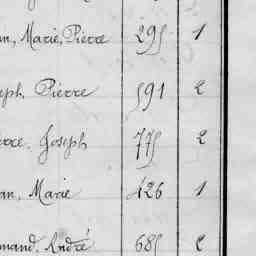 an, Marie, Pierre 295 1
eph, Pierre 591 2
erre, Joseph 775 2
an, Marie 426 1
mand, André 685 2